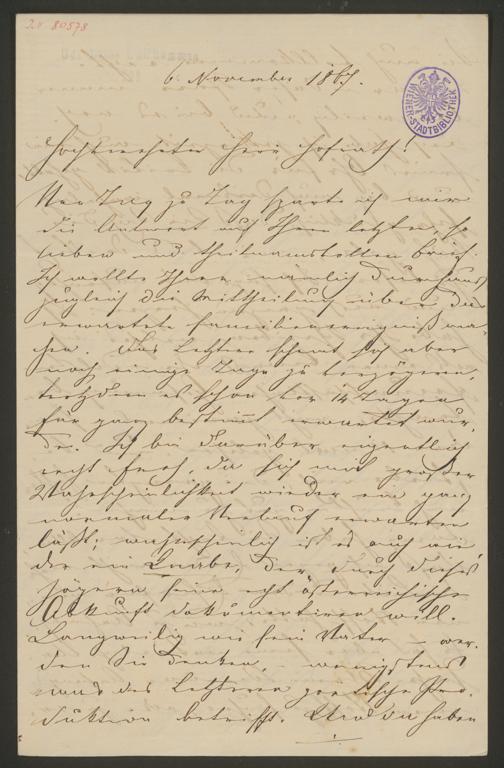 I.N. 80578
WIENER-STADTBIBLIOTHEK
6. November 1867.
Hochverehrter Herr Hofrath!
Von Tag zu Tag sparte ich mir
die Antwort auf Ihren letzten, so
lieben und theilnamsvollen Brief.
Ich wollte Ihnen nämlich durchaus
zugleich die Mittheilung über das
erwartete Familienereigniß ma-
chen. Das Letztere scheint sich aber
noch einige Tage zu verzögern,
trotzdem es schon vor 14 Tagen
für ganz bestimmt erwartet wur-
de. Ich bin darüber eigentlich
recht froh, da sich mit großer
Wahrscheinlichkeit wieder ein ganz
normaler Verlauf erwarten
läßt; wahrscheinlich ist es auch wie-
der ein Knabe, der durch dieses
Zögern seine echt österreichische
Abkunft dokumentiren will.
Langweilig wie sein Vater – wer-
den Sie denken, – wenigstens
was des Letzteren poetische Pro-
duktion betrifft. Und da haben